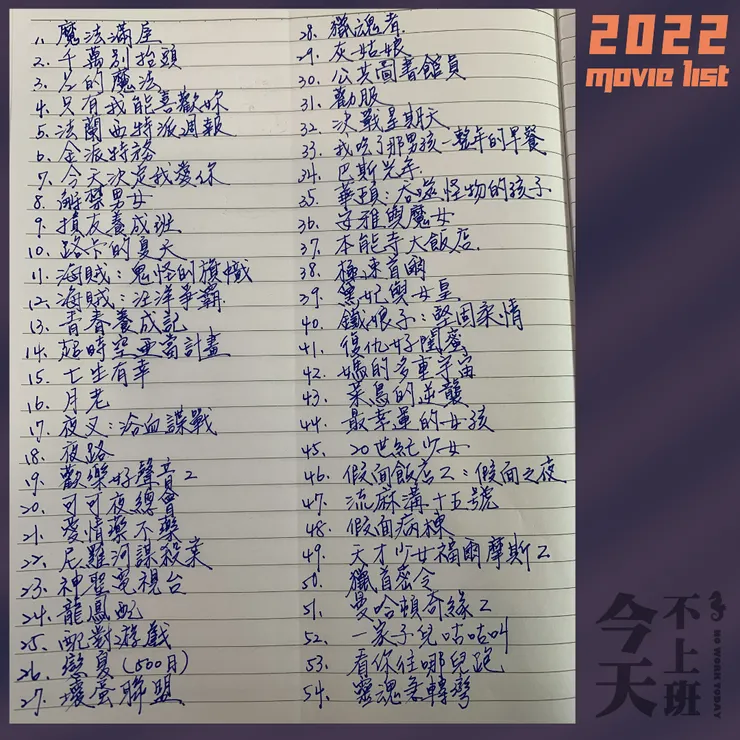 1. 魔法滿屋
2. 千萬別抬頭
3. 之的魔法
4. 只有我能喜歡妳
5. 法蘭西特派週報
6. 金派特務
7. 今天決定我愛你
8. 解禁男女
9. 損友養成班
10. 路卡的夏天
11. 海賊：鬼怪的旗幟
12. 海賊：汪洋爭霸
13. 青春養成記
14. 超時空亞當計畫
15. 七生有幸
16. 月老
17. 夜叉：浴血諜戰
18. 夜路
19. 歡樂好聲音2
20. 可可夜總會
21. 愛情藥不藥
22. 尼羅河謀殺案
23. 神聖電視台
24. 龍鳳配
25. 配對遊戲
26. 戀夏(500日)
27. 壞蛋聯盟
28. 獵魂者
29. 灰姑娘
30. 公共圖書館員
31. 勸服
32. 決戰星期天
33. 我吃了那男孩一整年的早餐
34. 巴斯光年
35. 華頓：吞噬怪物的孩子
36. 安雅與魔女
37. 本能寺大飯店
38. 極速首爾
39. 寵妃與女皇
40. 鐵娘子：堅固柔情
41. 復仇好閨蜜
42. 媽的多重宇宙
43. 菜鳥的逆襲
44. 最幸運的女孩
45. 20世紀少女
46. 假面飯店2：假面之夜
47. 流麻溝十五號
48. 假面病棟
49. 天才少女福爾摩斯2
50. 獵首密令
51. 曼哈頓奇緣2
52. 一家子兒咕咕叫
53. 看你往哪兒跑
54. 靈魂急轉彎
2022
movie list
今天
不上班
NO WORK TODAY